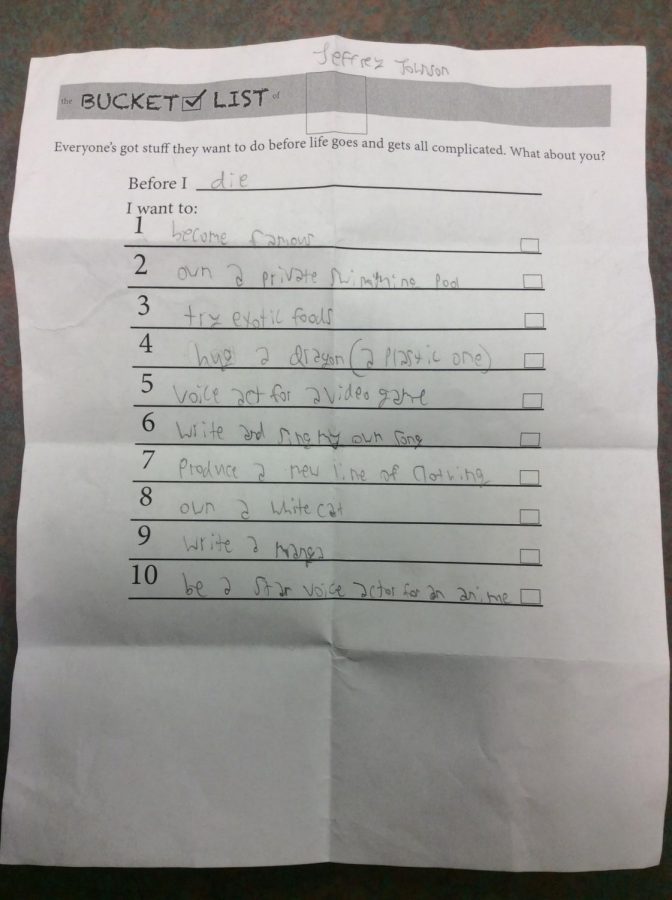 Jeffrey Johnson
the BUCKET LIST of
Everyone's got stuff they want to do before life goes and gets all complicated. What about you?
Before I die
I want to:
1 become famous
2 own a private swimming pool
3 try exotic foods
4 hug a dragon (a plastic one)
5 voice act for a video game
6 write and sing my own song
7 produce a new line of clothing
8 own a white cat
9 write a manga
10 be a star voice actor for an anime